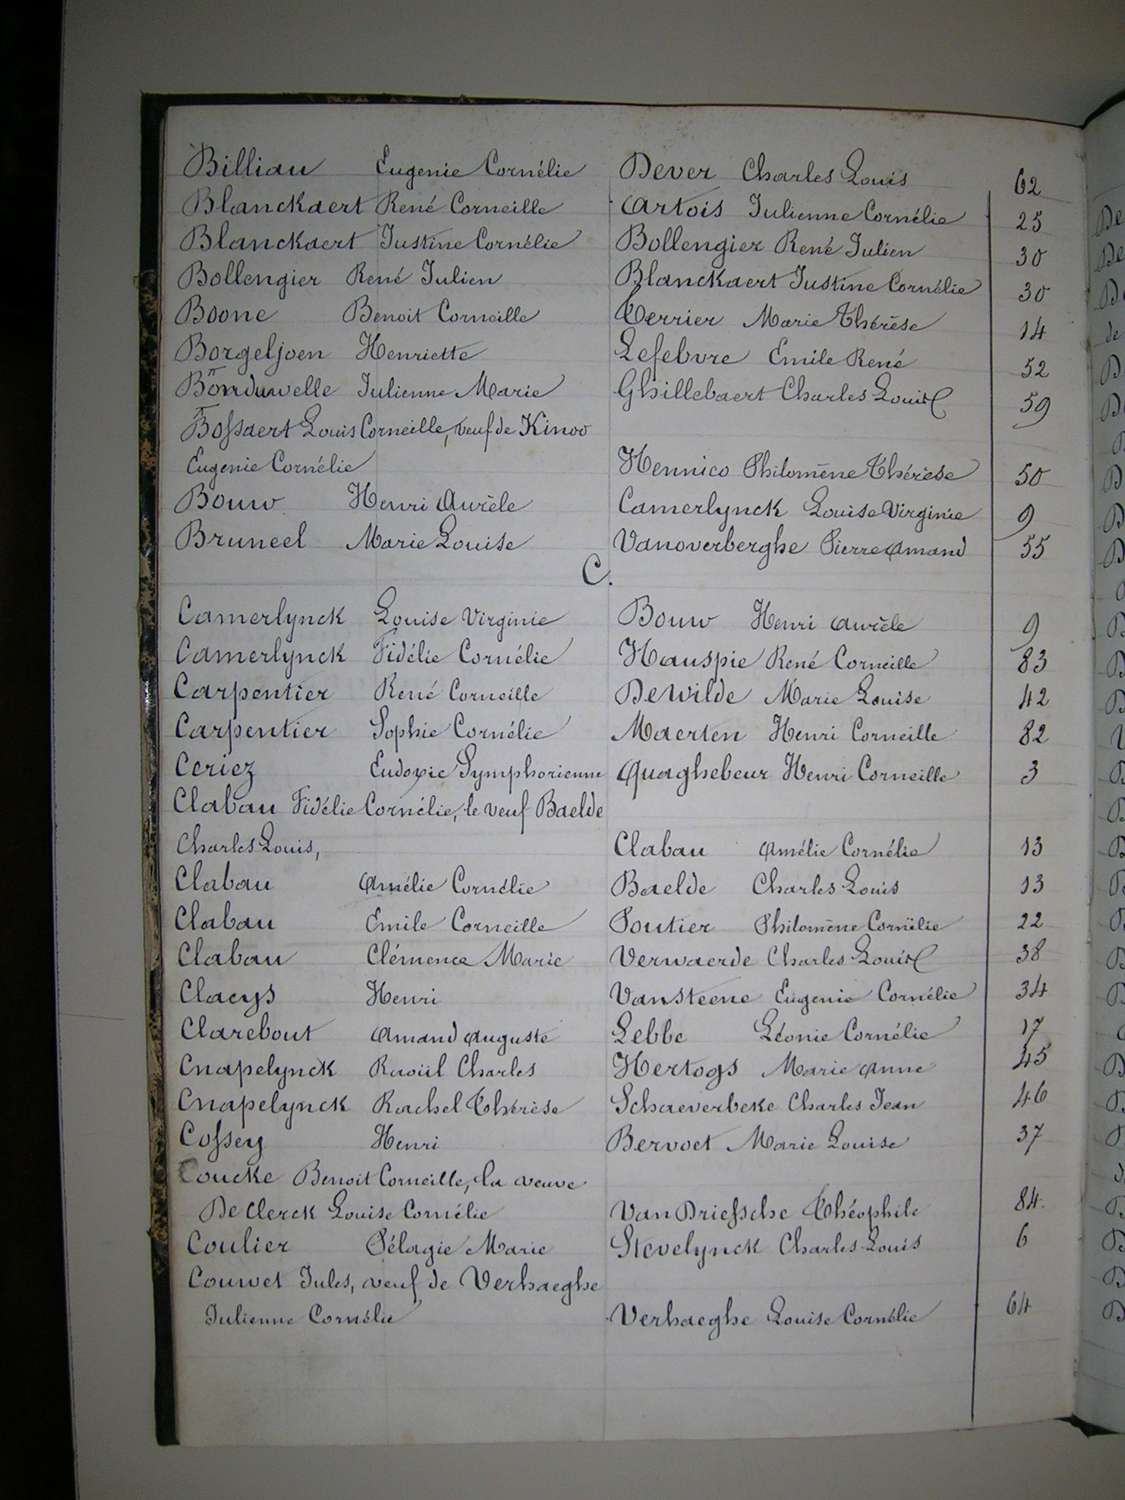 Billiau Eugenie Cornélie Dever Charles Louis 62
Blanckaert René Corneille Artois Julienne Cornélie 25
Blanckaert Justine Cornélie Bollengier René Julien 30
Bollengier René Julien Blanckaert Justine Cornélie 30
Boone Benoit Corneille Terrier Marie Thérèse 14
Borgeljoen Henriette Lefebvre Emile René 52
Bonduwelle Julienne Marie Ghillebaert Charles Louis 59
Bossaert Louis Corneille, veuf de Kinoo
Eugenie Cornélie Hennico Philomène Thérèse 50
Bouw Henri Aurèle Camerlynck Louise Virginie 9
Bruneel Marie Louise Vanoverberghe Pierre Amand 55
C.
Camerlynck Louise Virginie Bouw Henri Aurèle 9
Camerlynck Fidélie Cornélie Hauspie René Corneille 83
Carpentier René Corneille DeWilde Marie Louise 42
Carpentier Sophie Cornélie Maerten Henri Corneille 82
Ceriez Eudoxie Symphorienne Quaghebeur Henri Corneille 3
Clabau Fidélie Cornélie, le veuf Baelde
Charles Louis, Clabau Amélie Cornélie 13
Clabau Amélie Cornélie Baelde Charles Louis 13
Clabau Emile Corneille Soutier Philomène Cornélie 22
Clabau Clémence Marie Verwaerde Charles Louis 38
Claeys Henri Vansteene Eugenie Cornélie 34
Clarebout Amand Auguste Lebbe Léonie Cornélie 17
Cnapelynck Raoül Charles Hertogs Marie Anne 45
Cnapelynck Rachel Thérèse Schaeverbeke Charles Jean 46
Cossey Henri Bervoet Marie Louise 37
Coucke Benoit Corneille, la veuve
DeClerck Louise Cornélie VanDriessche Théophile 84
Coulier Pélagie Marie Stevelynck Charles Louis 6
Couwet Jules, veuf de Verhaeghe
Julienne Cornélie Verhaeghe Louise Cornélie 64